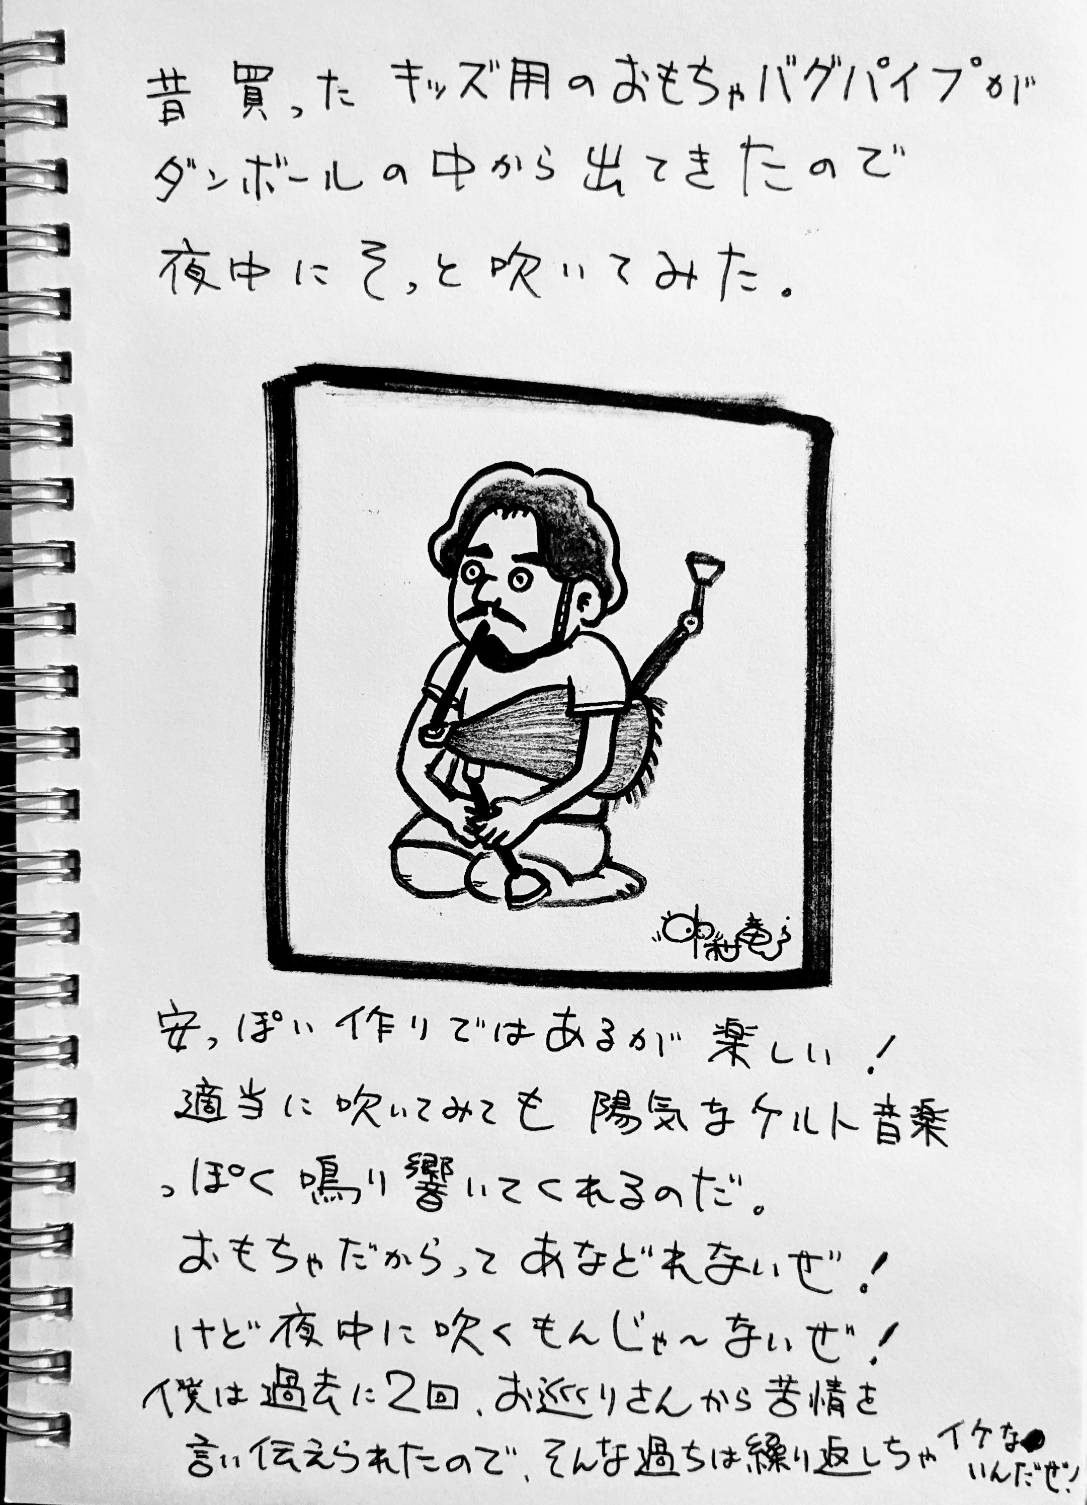 昔買ったキッズ用のおもちゃバグパイプが
ダンボールの中から出てきたので
夜中にそっと吹いてみた。
安っぽい作りではあるが楽しい!
適当に吹いてみても陽気なケルト音楽
っぽく鳴り響いてくれるのだ。
おもちゃだからってあなどれないぜ!
けど夜中に吹くもんじゃ〜ないぜ!
僕は過去に2回、お巡りさんから苦情を
言い伝えられたので、そんな過ちは繰り返しちゃイケな
いんだぜ!